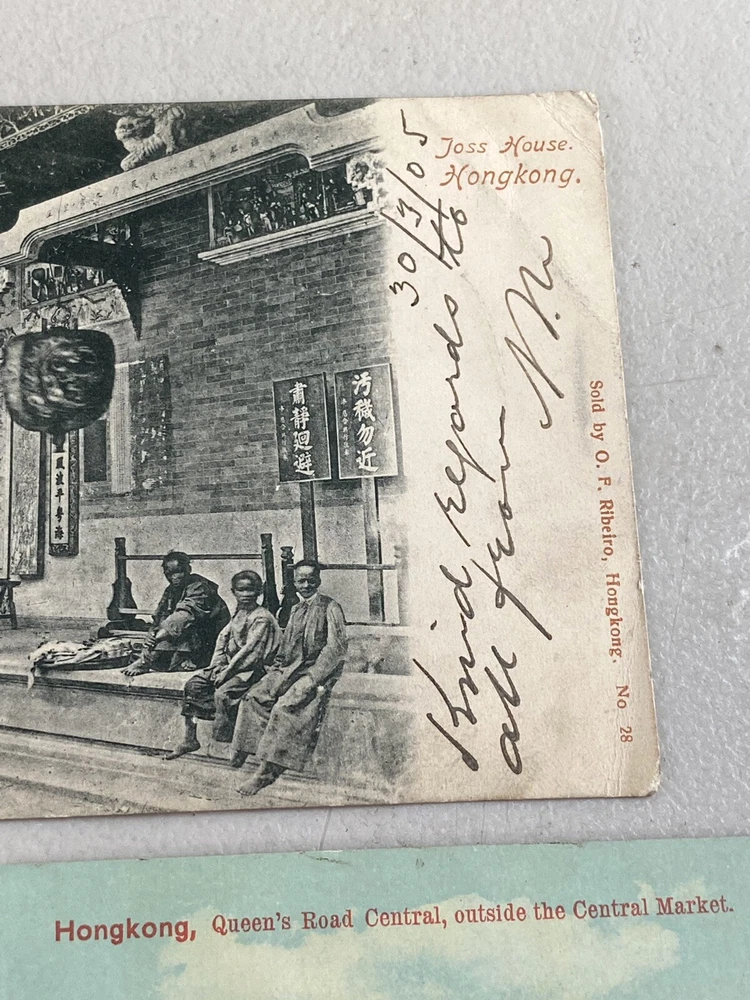 Joss House.
Hongkong.
30/3/05
Kind regards to
all from
Sold by O. F. Ribeiro, Hongkong. No 28
肅靜廻避
汚穢勿近
Hongkong, Queen's Road Central, outside the Central Market.